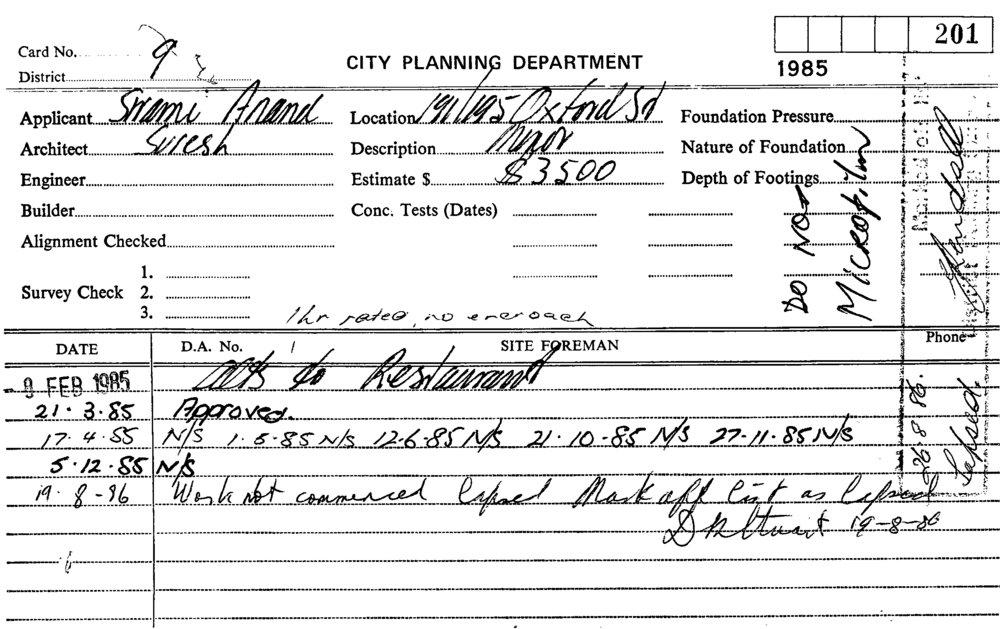 201
Card No. 9
CITY PLANNING DEPARTMENT
1985
District
Applicant Swami Anand
Location 191/195 Oxford St
Foundation Pressure
Architect Suresh
Description Minor
Nature of Foundation
Engineer
Estimate $ $3500
Depth of Footings
Builder
Conc. Tests (Dates)
Alignment Checked
Do Not
Microfilm
Survey Check
1.
2.
3.
1hr rated, no encroach
Marked off
DATE
D.A. No.
SITE FOREMAN
Phone
- 9 FEB 1985
alts to Restaurant
21·3·85 Approved.
17·4·85 N/S 1·5·85 N/S 12·6·85 N/S 21·10·85 N/S 27·11·85 N/S
5·12·85 N/S
19·8-86 Work not commenced lapsed Mark off list as lapsed
Stuart 19-8-86
26 8 86.
Lapsed.